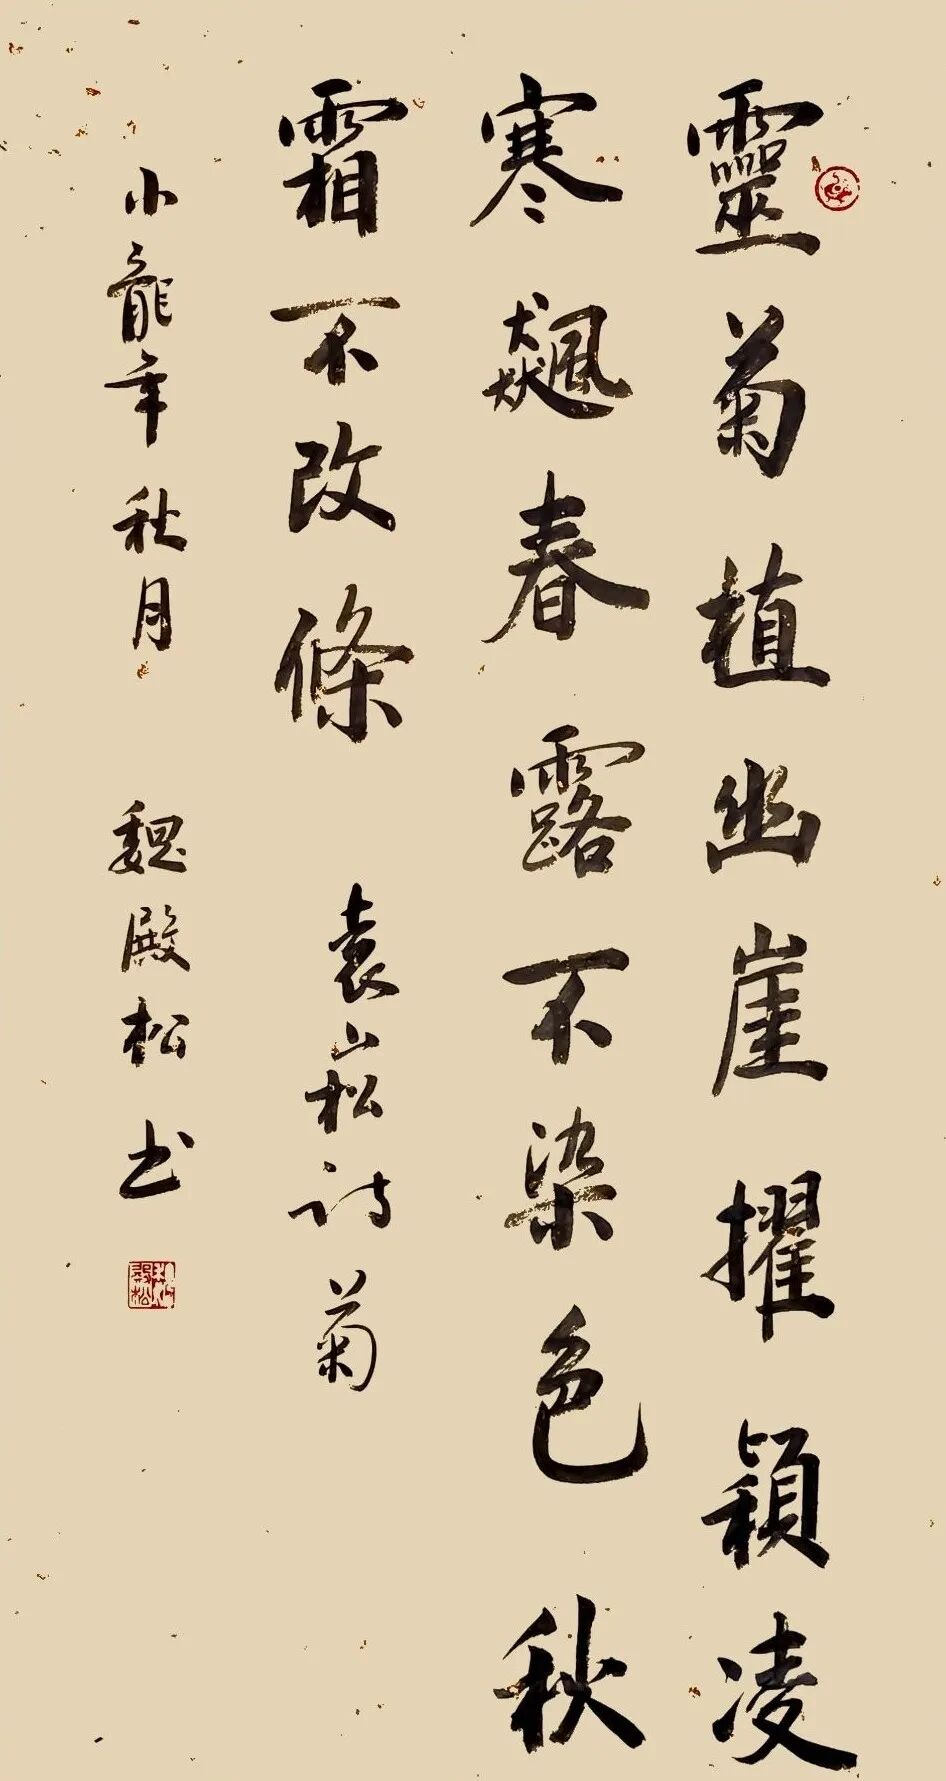 靈菊植幽崖擢穎凌
寒飆春露不染色秋
霜不改條 袁崧诗菊
小龍年秋月 魏殿松书